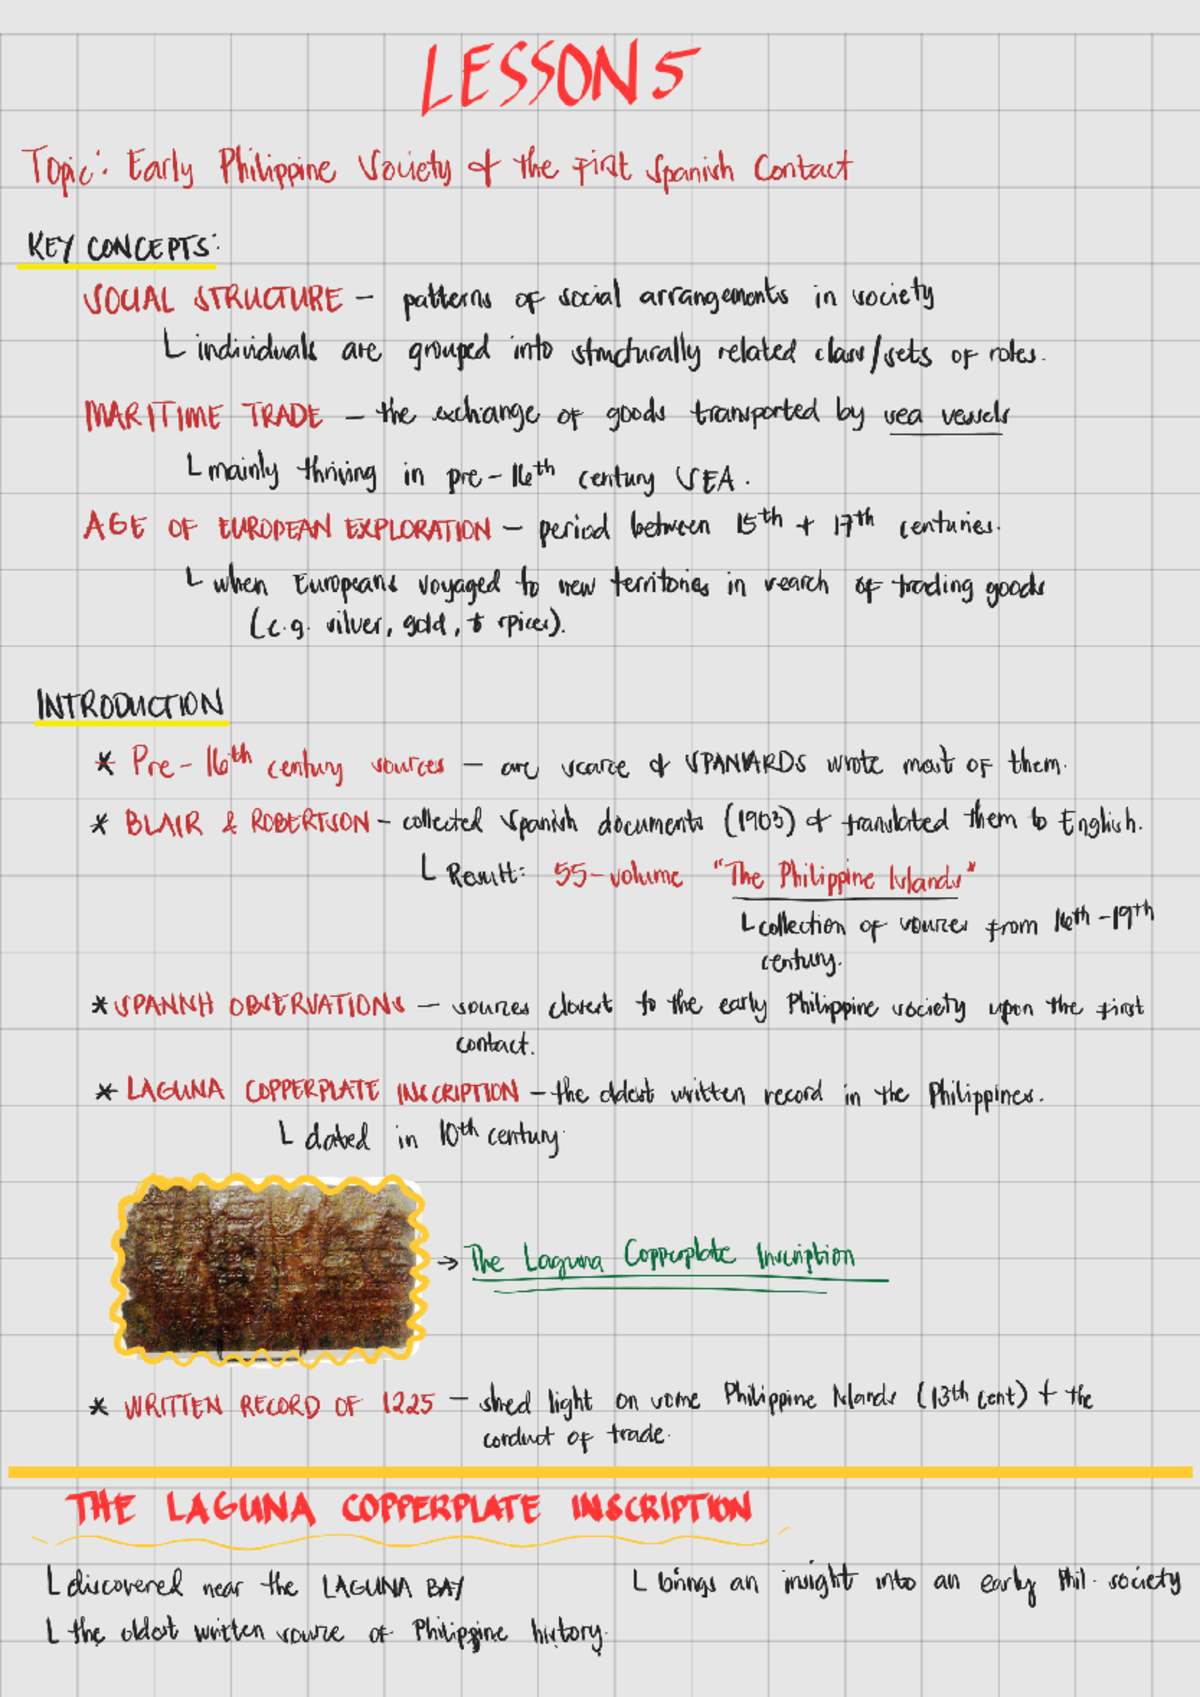 LESSON 5
Topic: Early Philippine Society & the First Spanish Contact
KEY CONCEPTS:
SOCIAL STRUCTURE – patterns of social arrangements in society
└ individuals are grouped into structurally related class/sets of roles.
MARITIME TRADE – the exchange of goods transported by sea vessels
└ mainly thriving in pre-16th century SEA.
AGE OF EUROPEAN EXPLORATION – period between 15th + 17th centuries.
└ when Europeans voyaged to new territories in search of trading goods
(e.g. silver, gold, & spices).
INTRODUCTION
* Pre-16th century sources – are scarce & SPANIARDS wrote most of them.
* BLAIR & ROBERTSON – collected Spanish documents (1903) & translated them to English.
└ Result: 55-volume "The Philippine Islands"
└ collection of sources from 16th-19th
century.
* SPANISH OBSERVATIONS – sources closest to the early Philippine society upon the first
contact.
* LAGUNA COPPERPLATE INSCRIPTION – the oldest written record in the Philippines.
└ dated in 10th century.
→ The Laguna Copperplate Inscription
* WRITTEN RECORD OF 1225 – shed light on some Philippine Islands (13th cent) + the
conduct of trade.
THE LAGUNA COPPERPLATE INSCRIPTION
└ discovered near the LAGUNA BAY
└ brings an insight into an early Phil. society
└ the oldest written source of Philippine history.